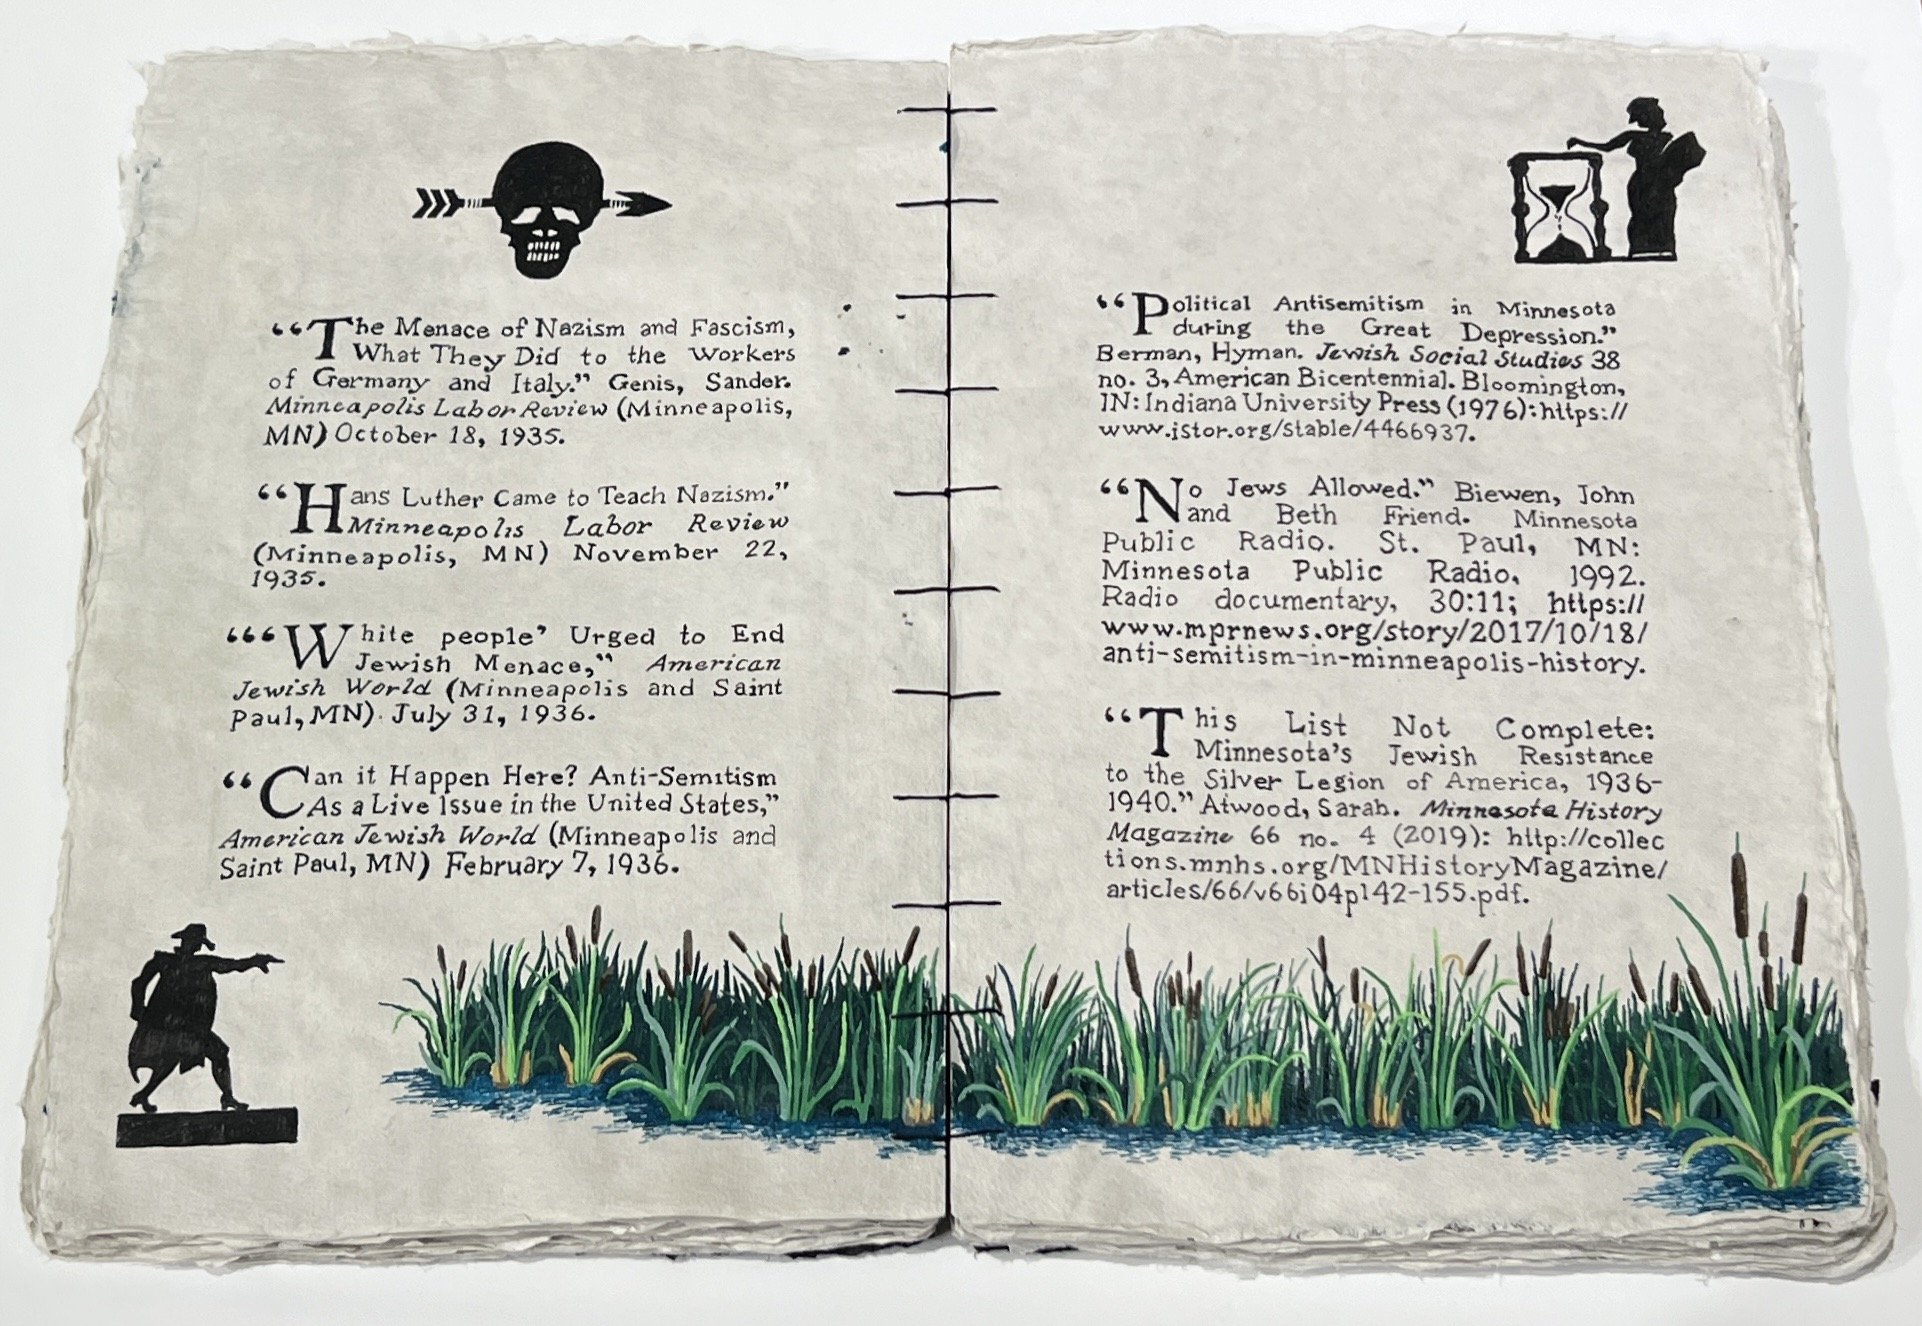 “The Menace of Nazism and Fascism,
What They Did to the Workers
of Germany and Italy.” Genis, Sander.
Minneapolis Labor Review (Minneapolis,
MN) October 18, 1935.
“Hans Luther Came to Teach Nazism.”
Minneapolis Labor Review
(Minneapolis, MN) November 22,
1935.
“‘White people’ Urged to End
Jewish Menace,” American
Jewish World (Minneapolis and Saint
Paul, MN). July 31, 1936.
“Can it Happen Here? Anti-Semitism
As a Live Issue in the United States,”
American Jewish World (Minneapolis and
Saint Paul, MN) February 7, 1936.
“Political Antisemitism in Minnesota
during the Great Depression.”
Berman, Hyman. Jewish Social Studies 38
no. 3, American Bicentennial. Bloomington,
IN: Indiana University Press (1976): https://
www.jstor.org/stable/4466937.
“No Jews Allowed.” Biewen, John
and Beth Friend. Minnesota
Public Radio. St. Paul, MN:
Minnesota Public Radio, 1992.
Radio documentary, 30:11; https://
www.mprnews.org/story/2017/10/18/
anti-semitism-in-minneapolis-history.
“This List Not Complete:
Minnesota's Jewish Resistance
to the Silver Legion of America, 1936-
1940.” Atwood, Sarah. Minnesota History
Magazine 66 no. 4 (2019): http://collec
tions.mnhs.org/MNHistoryMagazine/
articles/66/v66i04p142-155.pdf.